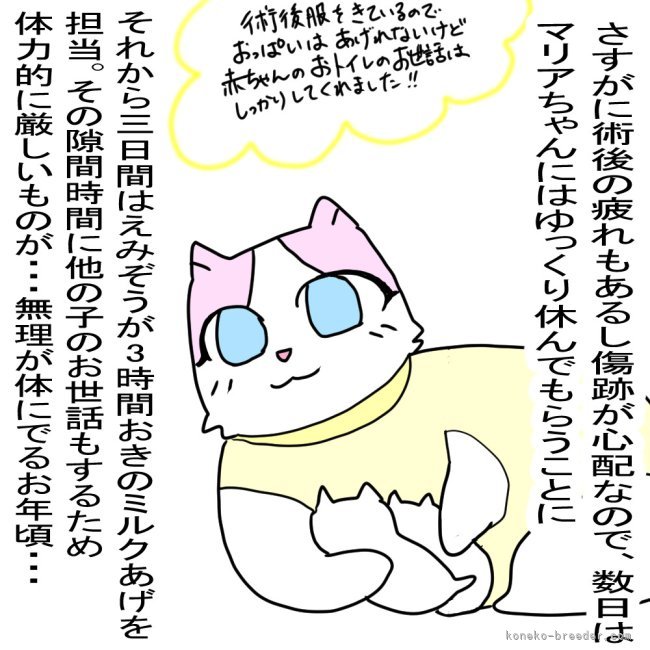 さすがに術後の疲れもあるし傷跡が心配なので、数日は
マリアちゃんにはゆっくり休んでもらうことに
術後服をきているので
おっぱいは あげれないけど
赤ちゃんの おトイレの お世話は
しっかりしてくれました!!
それから三日間はえみぞうが3時間おきのミルクあげを
担当。その隙間時間に他の子のお世話もするため
体力的に厳しいものが・・・無理が体にでるお年頃・・・
koneko-breeder.com